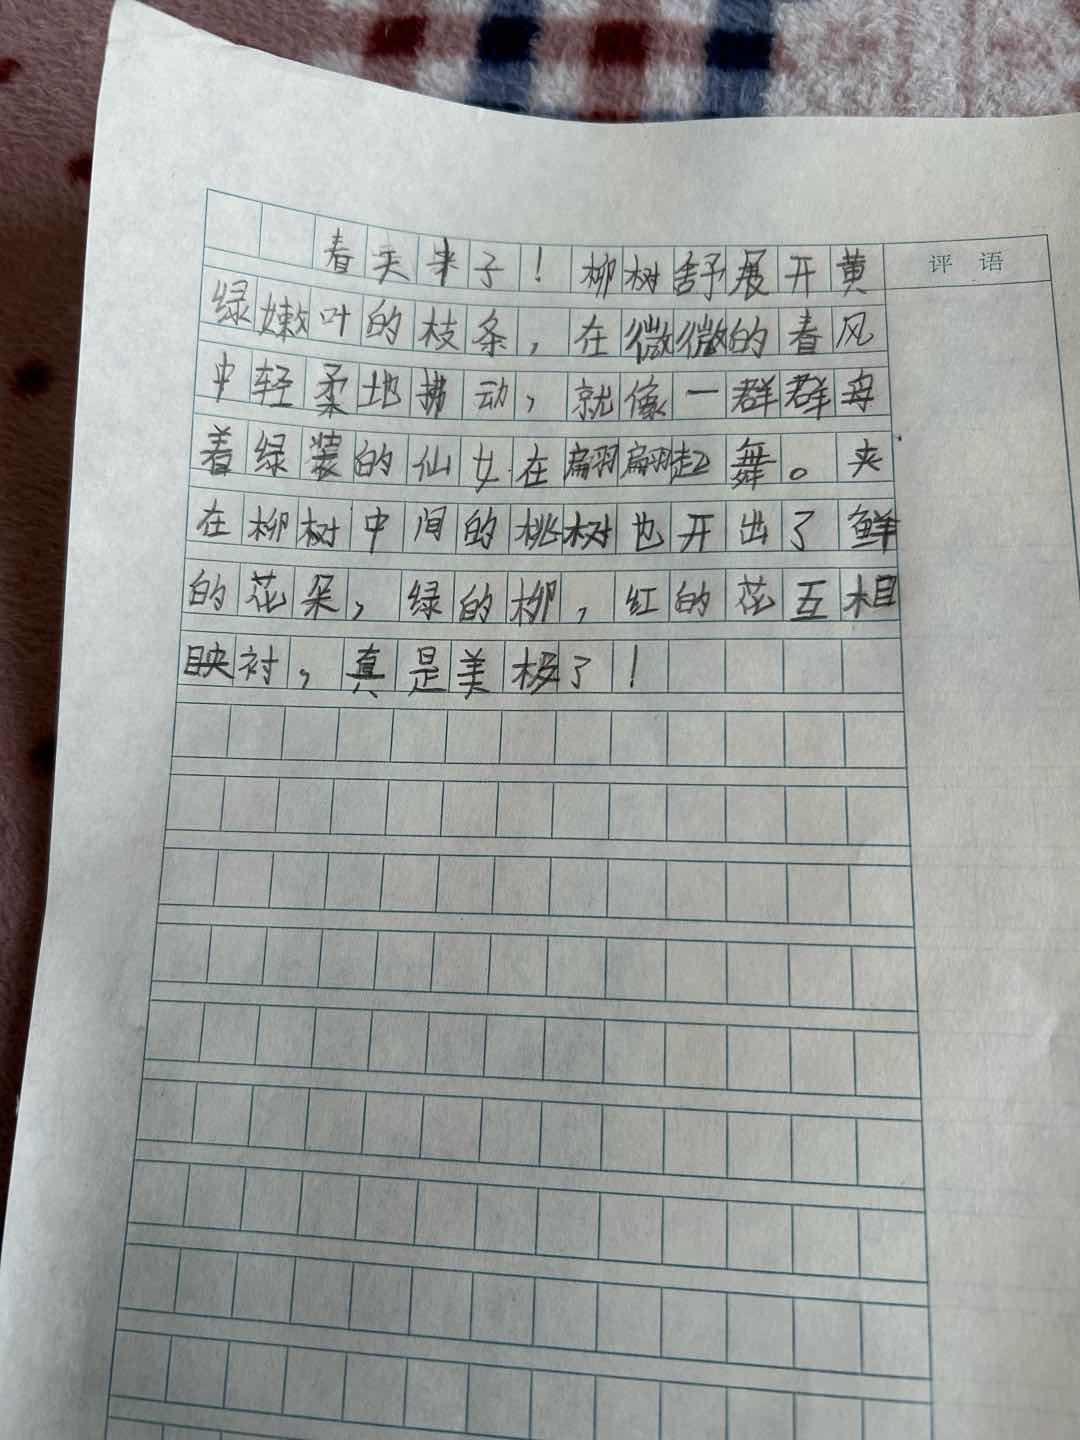 春天半子！柳树舒展开黄
评语
绿嫩叶的枝条，在微微的春风
中轻柔地拂动，就像一群群母
着绿装的仙女在翩翩起舞。夹
在柳树中间的桃树也开出了鲜
的花朵，绿的柳，红的花互相
映衬，真是美极了！